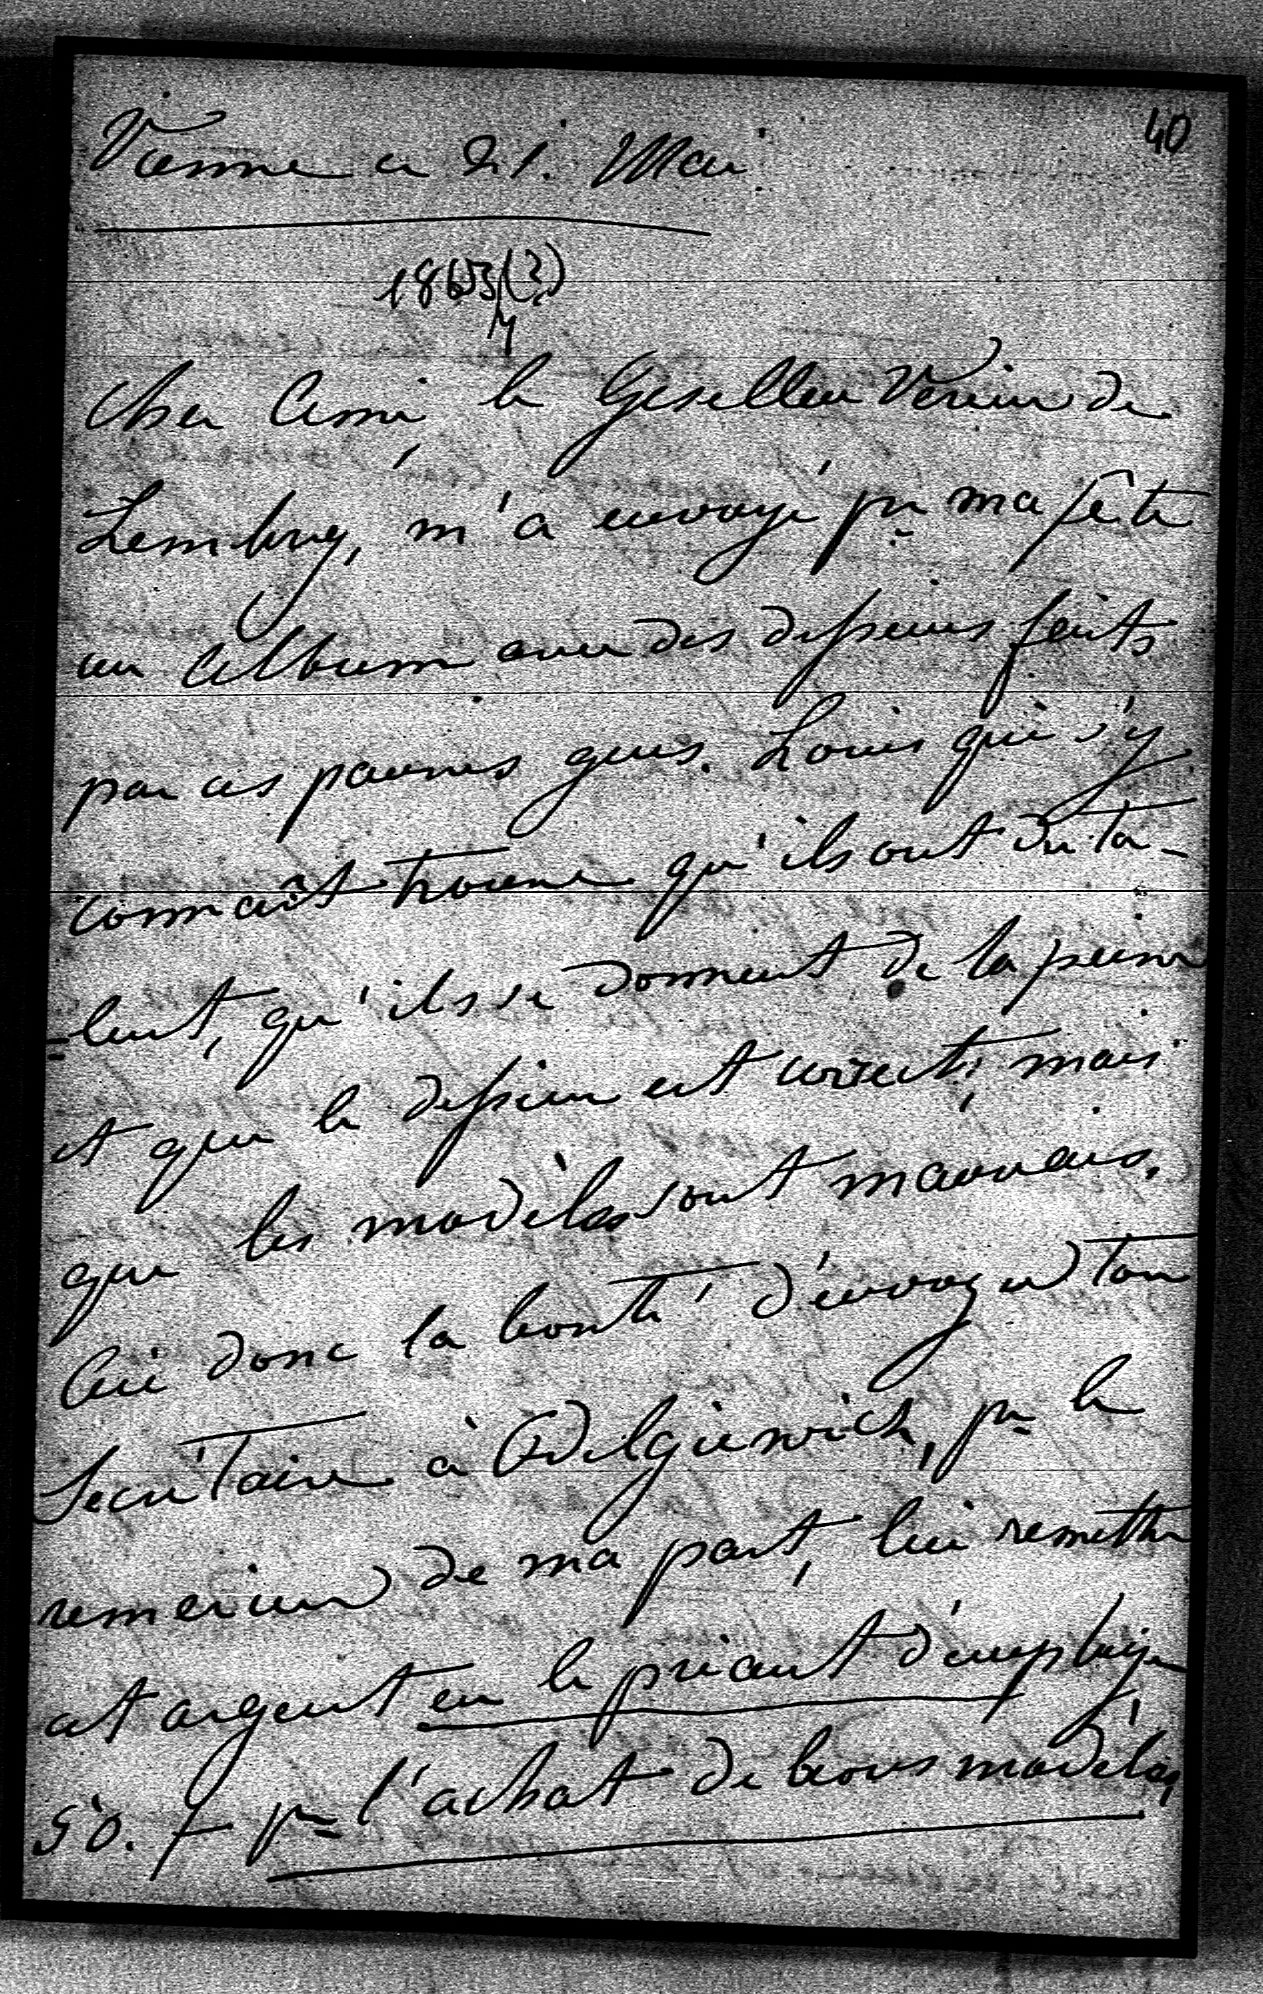 40
Vienne ce 21. Mai
1863(?)
4
Cher Ami, le Gesellen Verein de
Lemberg, m'a envoyé pr ma fête
un Album avec des dessins faits
par ces pauvres gens. Louis qui s'y
connaît trouve qu'ils ont du ta-
=lent, qu'ils se donnent de la peine
et que le dessin est correct, mais
que les modèles sont mauvais.
Aie donc la bonté d'envoyer ton
Secrétaire à Odelgiewich, pr le
remercier de ma part, lui remettre
cet argent en le priant d'employer
50. f pr l'achat de bons modèles